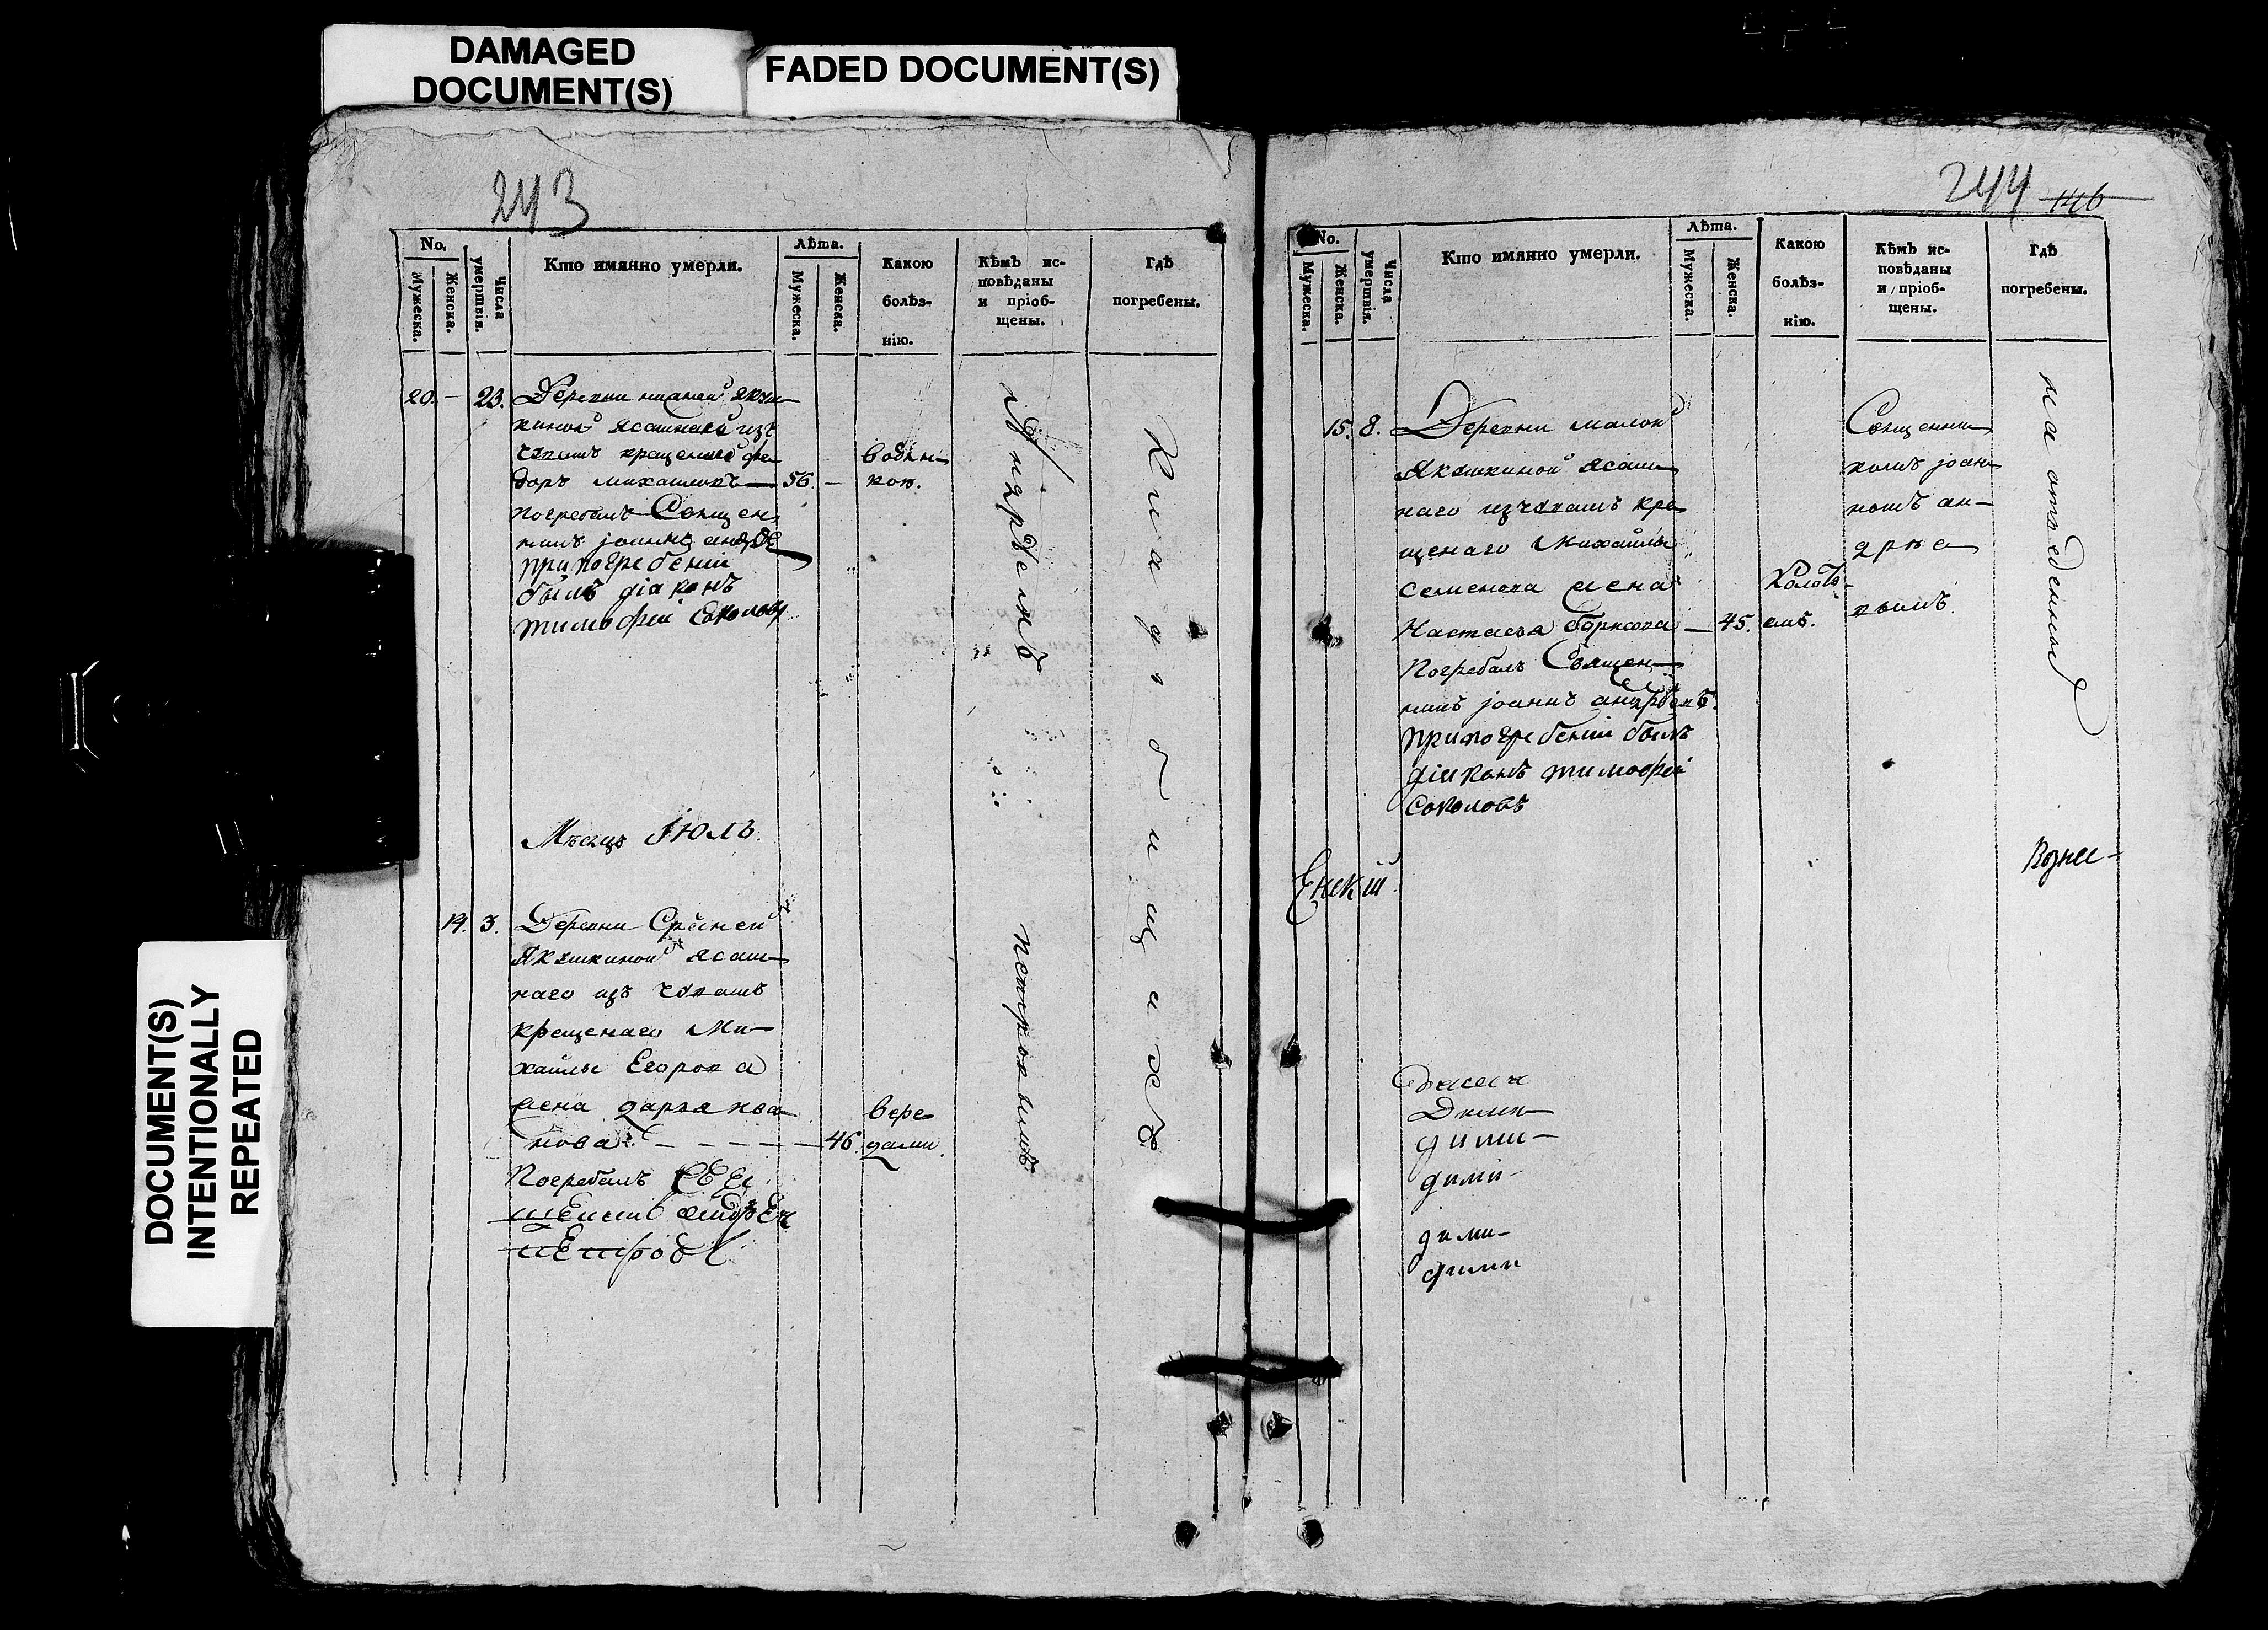 DAMAGED
DOCUMENT(S)
FADED DOCUMENT(S)
DOCUMENT(S)
INTENTIONALLY
REPEATED
243
No.
Мужеска.
Женска.
Числа
умертвія.
Кто имянно умерли.
Лѣта.
Мужеска.
Женска.
Какою
болѣз-
нію.
Кѣмъ ис-
повѣданы
и пріоб-
щены.
Гдѣ
погребены.
20. — 23.
Деревни нижней Якуш-
киной ясашной изъ
чувашъ крещеной Фе-
доръ Михайловъ — 56. —
погребалъ Священ-
никъ Іоаннъ Андре
при погребеніи
былъ діаконъ
тимофей Соколовъ
Андрѣевымъ
На кладбищахъ
Мѣсяцъ Іюль.
14. 3.
Деревни Средней
Якушкиной ясаш-
наго изъ чувашъ
крещенаго Ми-
хайлы Егорова
жена дарья Ива-
нова — — — — 46.
вере-
дами.
Погребалъ
петровымъ
244
146
No.
Мужеска.
Женска.
Числа
умертвія.
Кто имянно умерли.
Лѣта.
Мужеска.
Женска.
Какою
болѣз-
нію.
Кѣмъ ис-
повѣданы
и пріоб-
щены.
Гдѣ
погребены.
15. 8.
Деревни малой
Якушкиной ясаш-
наго изъ чувашъ кре-
щенаго Михайлы
Семенова жена
Настасья борисова — 45.
Погребалъ Священ-
никъ Іоаннъ андрѣевъ.
при погребеніи былъ
діаконъ тимофей
Соколовъ
Священни-
комъ Іоан-
номъ ан-
дрѣе-
вымъ.
на отведенныхъ
Возне-
Енскій